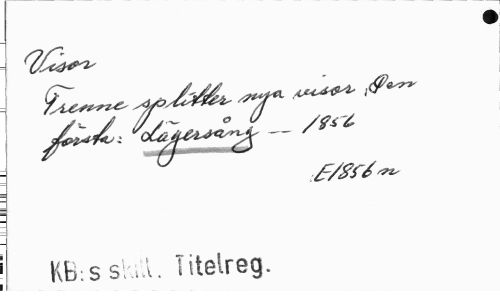 Visor
Trenne splitter nya visor, Den
första: Lägersång -- 1856
E1856 n
KB:s skill. Titelreg.